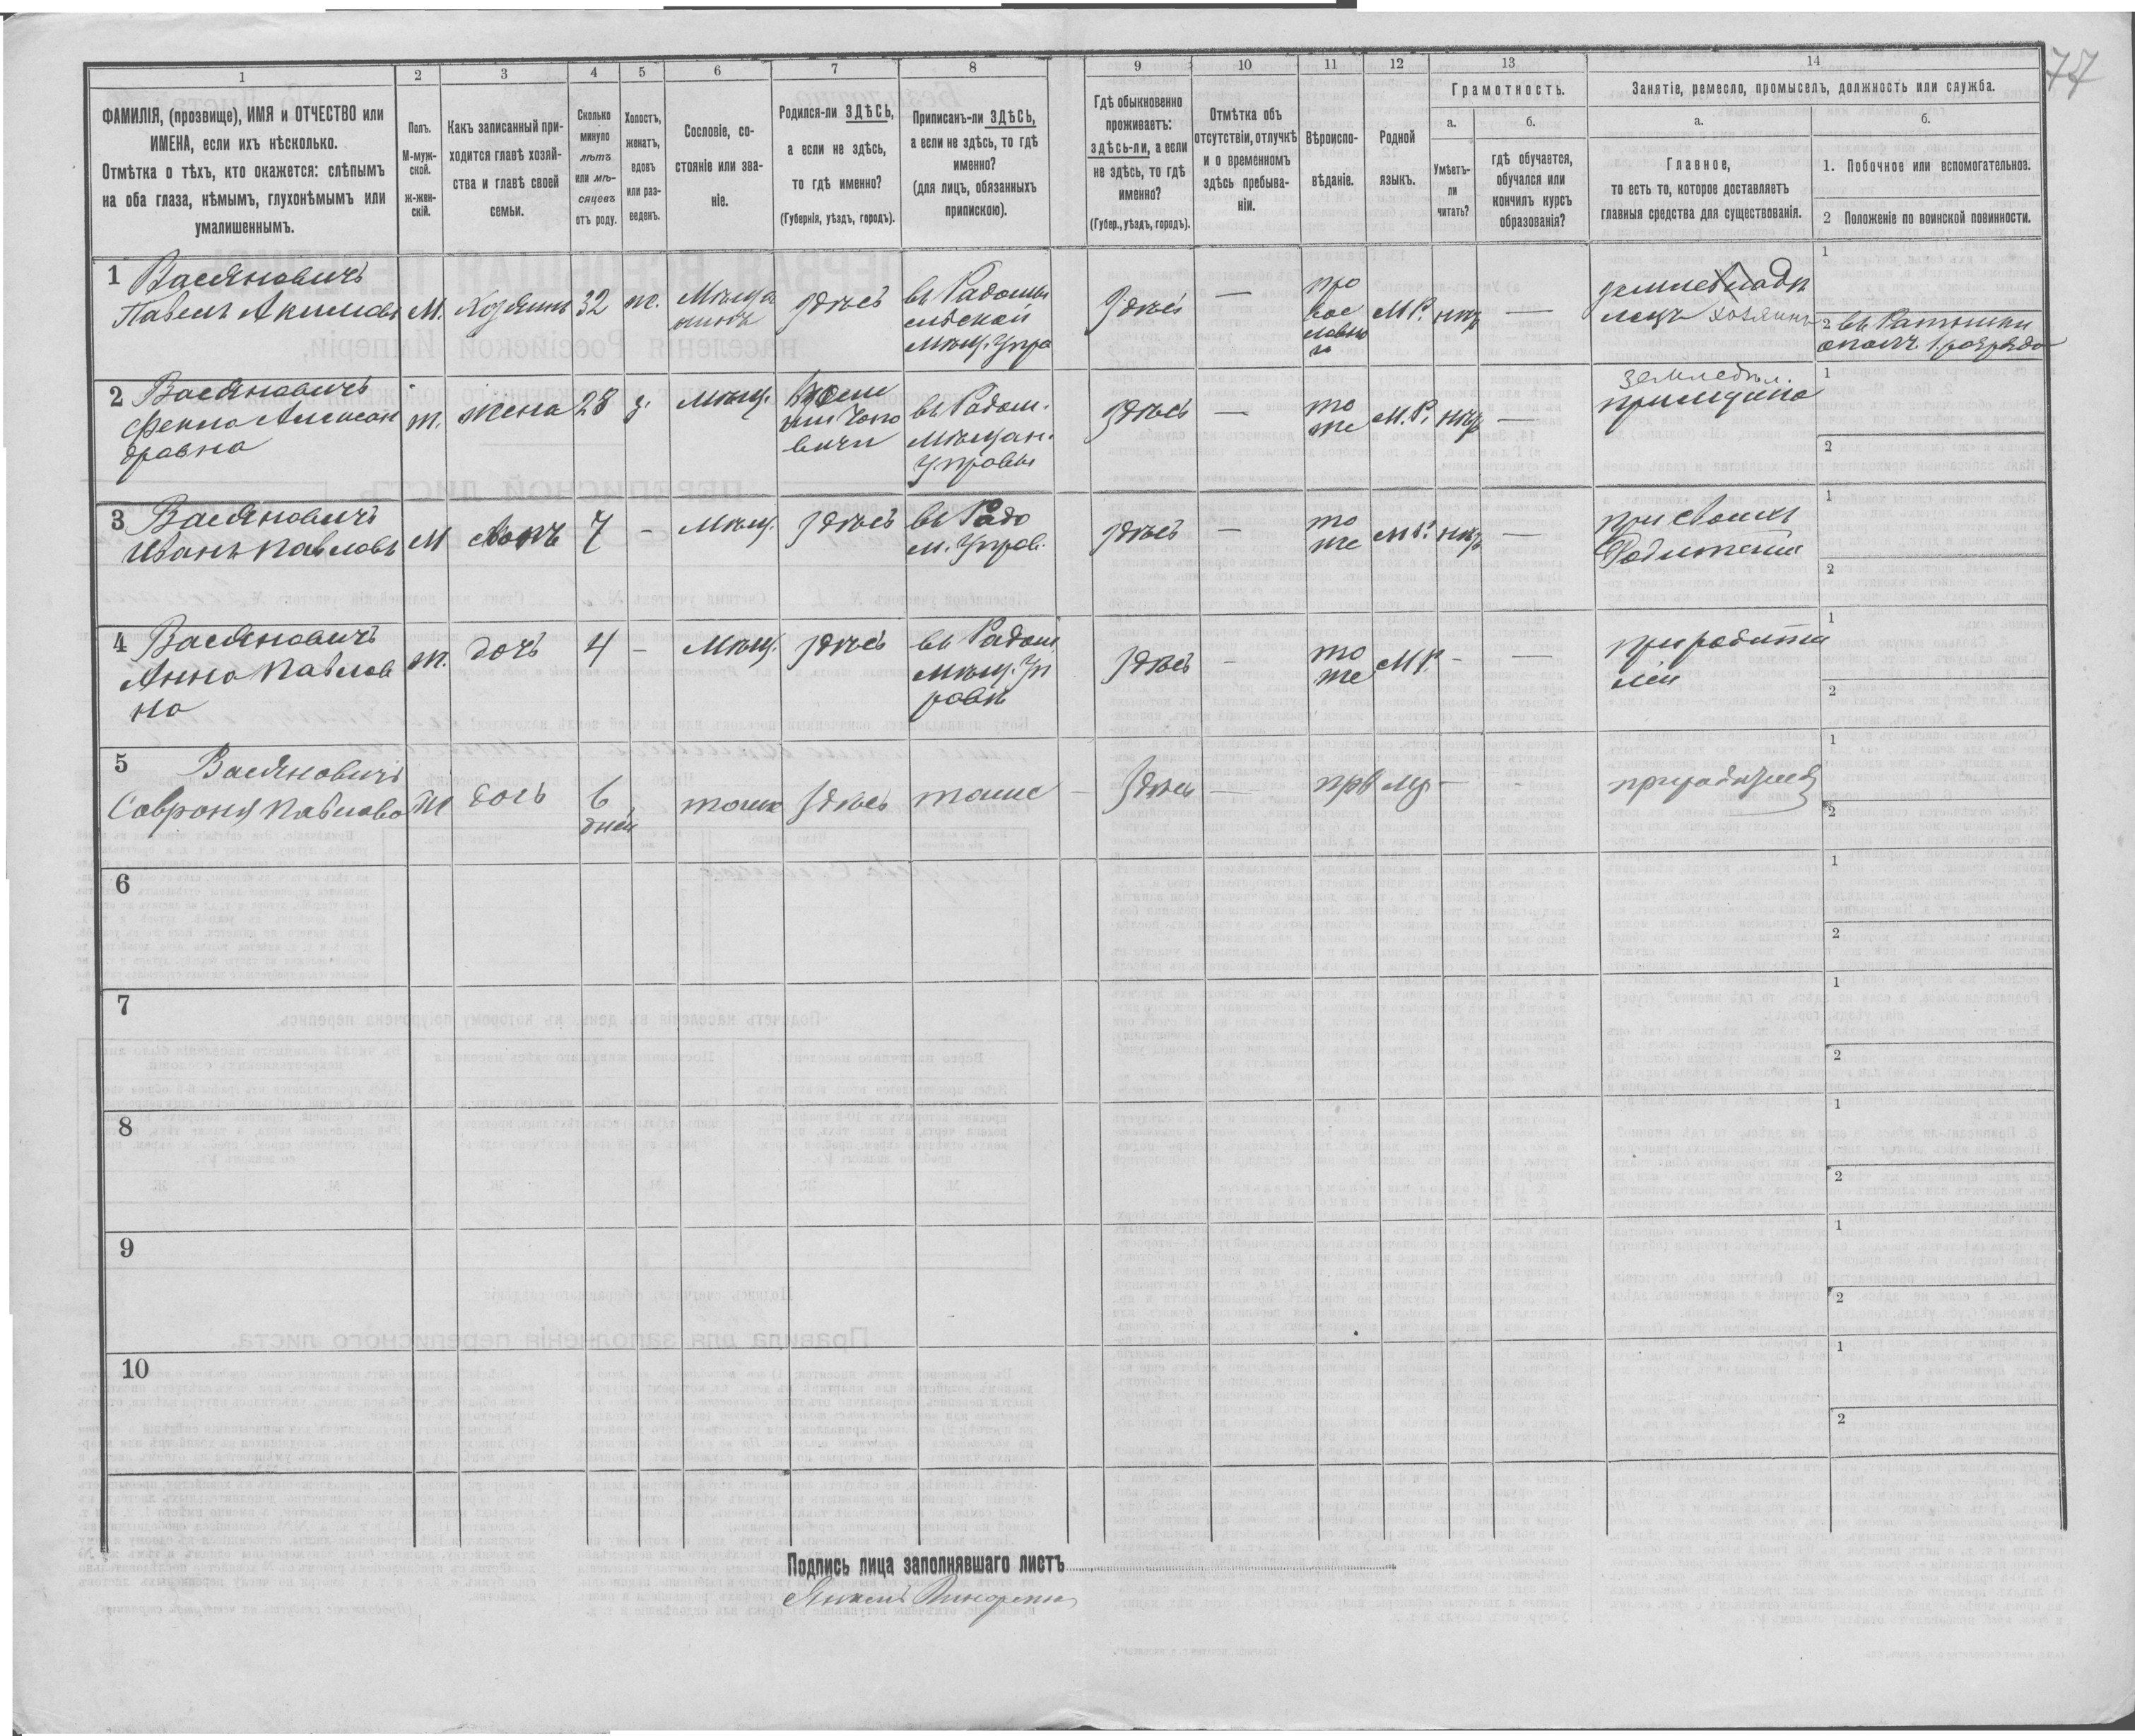 77
1 2 3 4 5 6 7 8 9 10 11 12 13 14
ФАМИЛІЯ, (прозвище), ИМЯ и ОТЧЕСТВО или
ИМЕНА, если ихъ нѣсколько.
Отмѣтка о тѣхъ, кто окажется: слѣпымъ
на оба глаза, нѣмымъ, глухонѣмымъ или
умалишеннымъ.
Полъ.
М-муж-
ской.
ж-жен-
скій.
Какъ записанный при-
ходится главѣ хозяй-
ства и главѣ своей
семьи.
Сколько
минуло
лѣтъ
или мѣ-
сяцевъ
отъ роду.
Холостъ,
женатъ,
вдовъ
или раз-
веденъ.
Сословіе, со-
стояніе или зва-
ніе.
Родился-ли ЗДѢСЬ,
а если не здѣсь,
то гдѣ именно?
(Губернія, уѣздъ, городъ).
Приписанъ-ли ЗДѢСЬ,
а если не здѣсь, то гдѣ
именно?
(для лицъ, обязанныхъ
припискою).
Гдѣ обыкновенно
проживаетъ:
здѣсь-ли, а если
не здѣсь, то гдѣ
именно?
(Губер., уѣздъ, городъ).
Отмѣтка объ
отсутствіи, отлучкѣ
и о временномъ
здѣсь пребыва-
ніи.
Вѣроиспо-
вѣданіе.
Родной
языкъ.
Грамотность.
а.
Умѣетъ-
ли
читать?
б.
гдѣ обучается,
обучался или
кончилъ курсъ
образованія?
Занятіе, ремесло, промыселъ, должность или служба.
а.
Главное,
то есть то, которое доставляетъ
главныя средства для существованія.
б.
1. Побочное или вспомогательное.
2 Положеніе по воинской повинности.
1 Васяновичъ
Павелъ Акимовъ
М.
Хозяинъ
32
ж.
Мѣща
нинъ
здѣсь
въ Радомы
сльской
мѣщ. Упра
здѣсь
—
пра
вос
лавно
М.Р.
нѣтъ
—
хозяинъ
1
2
ополч. 1 разряда
2 Васяновичъ
Фекла Алексан
дровна
ж.
жена
28
з.
мѣщ.
вичи
въ Радом.
мѣщан.
Управы
здѣсь
—
то
же
М.Р.
нѣтъ
—
земледѣл.
1
2
3 Васяновичъ
Иванъ Павловъ
М
сынъ
7
-
мѣщ.
здѣсь
въ Радо
м. Управ.
здѣсь
—
то
же
М.Р.
нѣтъ
—
при своихъ
1
2
4 Васяновичъ
Анна Павлов
на
ж.
дочь
4
-
мѣщ.
здѣсь
въ Радом
мѣщ. Уп
равѣ
здѣсь
-
то
же
М.Р.
-
—
при родите
лей
1
2
5 Васяновичъ
Павлова
ж
дочь
6
дней
тоже
здѣсь
тоже
—
здѣсь
—
прв
мр
—
-
1
2
6
1
2
7
1
2
8
1
2
9
1
2
10
1
2
Подпись лица заполнявшаго листъ